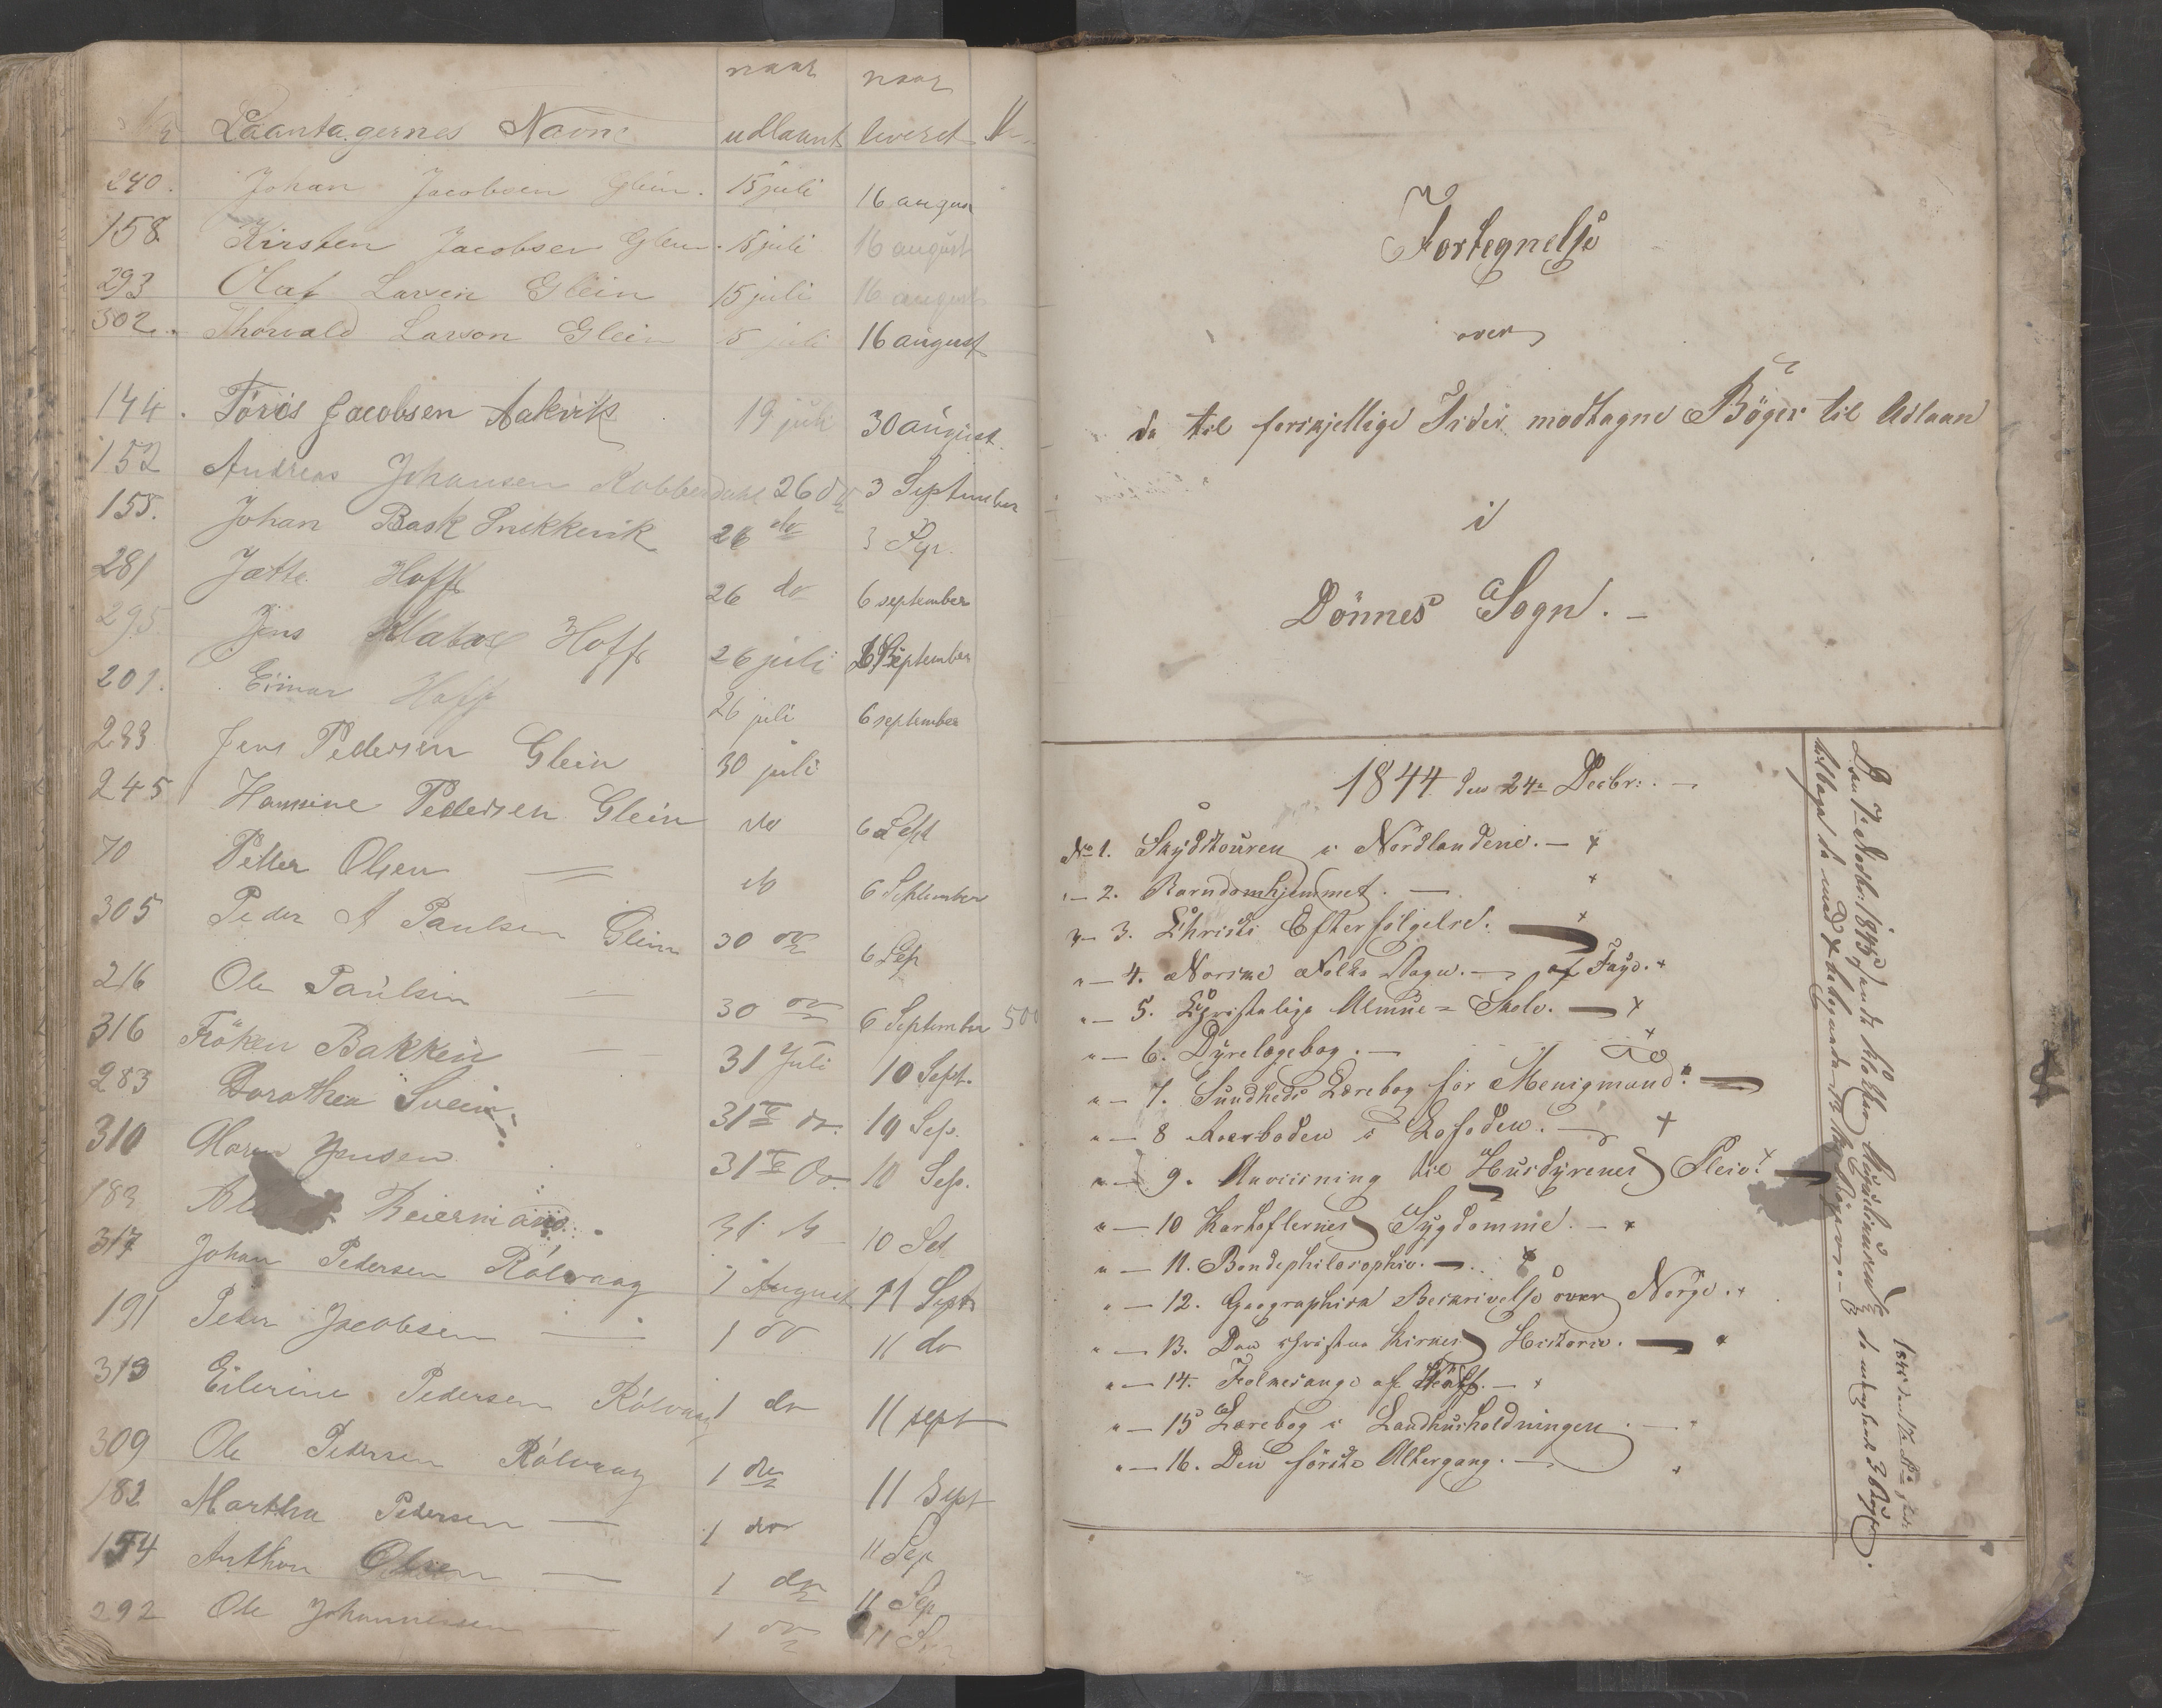 naar naar
Laantagernes Navne udlaant leveret
240. Johan Jacobsen Glein. 15 juli 16 august
158. Kirsten Jacobsen Glein. 15 juli 16 august
293 Olaf Larsen Glein 15 juli 16 august
302. Thorvald Larson Glein 15 juli 16 august
144. Tøris Jacobsen Aakvik 19 juli 30 august
152 Andreas Johansen Kobberdahl 26 do 3 September
155. Johan Bask Snekkevik 26 do 3 Sep.
281 Jætte Hoff 26 do 6 september
295. Jens Hoff 26 juli 6 September
201. Einar Hoff 26 juli 6 september
233 Jens Pedersen Glein 30 juli
245 Hansine Pedersen Glein do 6 Sept
70 Petter Olsen — do 6 September
305 Peder A Paulsen Glein 30 do 6 Sep
216 Ole Paulsen — 30 do 6 September 500
316 Fröken Bakken — 31 Juli 10 Sept.
283 Dorothea Svein 31te do. 10 Sep.
310 Maren Jensen 31te do. 10 Sep.
183 Beiermann 31 do 10 Set
317 Johan Pedersen Rölvaag 1 August 11 Sept
191 Peder Jacobsen — 1 do 11 do
313 Eilerine Pedersen Rölvaag 1 do 11 sept
309 Ole Pedersen Rölvaag 1 do 11 Sept
182 Martha Pedersen — 1 do 11 Sep
154 Anthon Olsen — 1 do 11 Sep
292 Ole Johannesen — 1 do 11 Sep
Fortegnelse
over
de til forskjellige Tider modtagne Böger til Udlaan
i
Dönnes Sogn. –
1844 den 24de Decbr. –
No 1. Skydstouren i Nordlandene. – x
" – 2. Barndomhjemmet. – x
" – 3. Christi Efterfölgelse. – x
" – 4. Norske Folke Sagn. – af Faye. x
" – 5. Christelige Almue= Skole. – x
" – 6. Dyrelægebog. – x
" – 7. Sundheds Lærebog for Menigmand. –
" – 8 Roerboden i Lofoden. – x
" – 9. Anviisning til Husdyrenes Pleie. x –
" – 10 Kartoflernes Sygdomme. – x
" – 11. Bondephilosophie. – x
" – 12. Geographisk Beskrivelse over Norge. x
" – 13. Den christne Kirkes Historie. – x
" – 14. Folkesange af – x
" – 15 Lærebog i Landhusholdningen. –
" – 16. Den förste Altergang. – x
Den 7de Novbr. 1845
tilbage de med x betegnede Böger. –